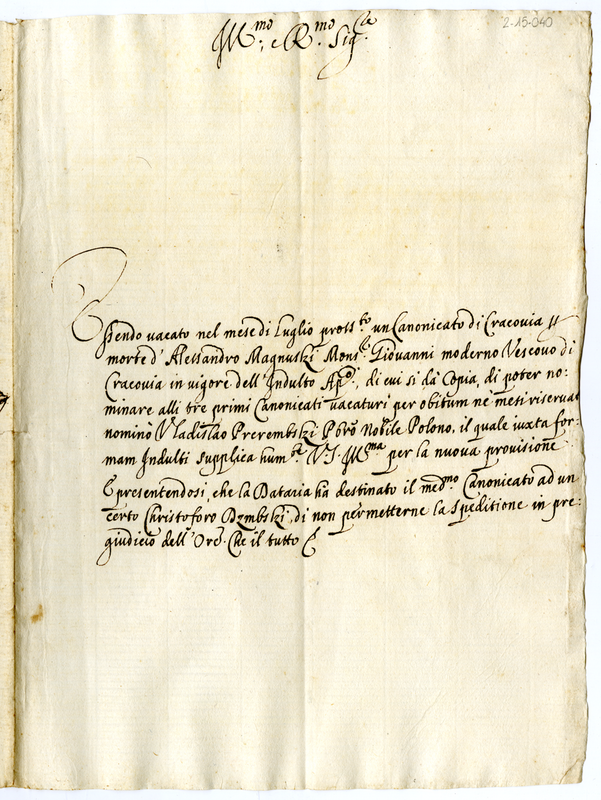 2-15-040
Ill.mo e R.mo Sig.re
Essendo vacato nel mese di Luglio pross.to un Canonicato di Cracovia p
morte d'Alessandro Magnuski Mons.r Giovanni moderno Vescouo di
Cracovia in vigore dell'Indulto Ap.co, di cui si dà Copia, di poter no:
minare alli tre primi Canonicati vacaturi per obitum ne mesi riseruati
nominò Vladislao Prerembski Pbrō Nobile Polono, il quale iuxta for:
mam Indulti supplica hum.te V.S. Ill.ma per la nuova provisione
E presentendosi, che la Dataria ha destinato il med.mo Canonicato ad un
certo Christoforo Dzmbski, di non permetterne la speditione in pre:
giudicio dell'Ore. Che il tutto &